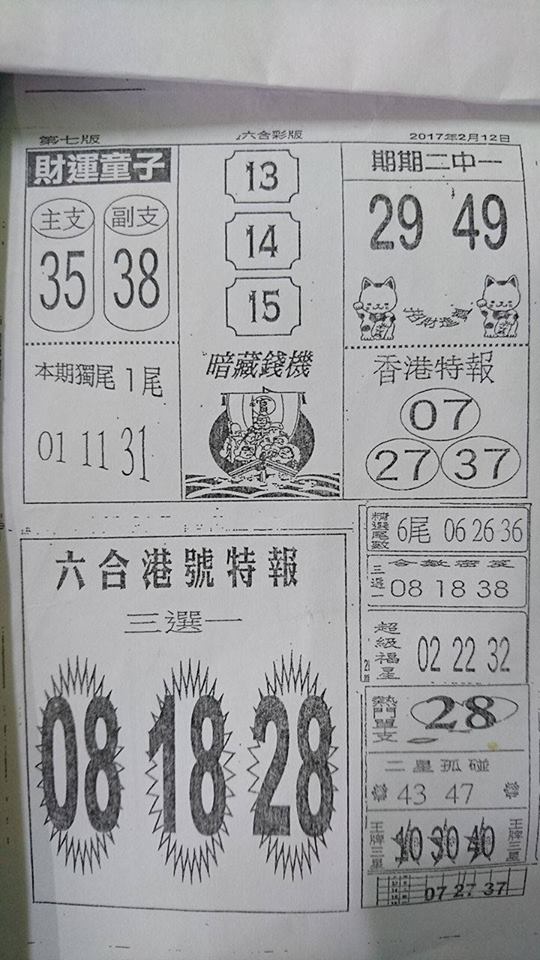 第七版 六合彩版 2017年2月12日
財運童子
主支 副支
35 38
13
14
15
期期二中一
29 49
本期獨尾1尾
01 11 31
暗藏錢機
香港特報
07
27 37
六合港號特報
三選一
08 18 28
精選尾數 6尾 06 26 36
三選一
08 18 38
超級福星 02 22 32
熱門單支 28
二星孤碰
43 47
王牌三星 10 30 40 王牌三星
07 27 37